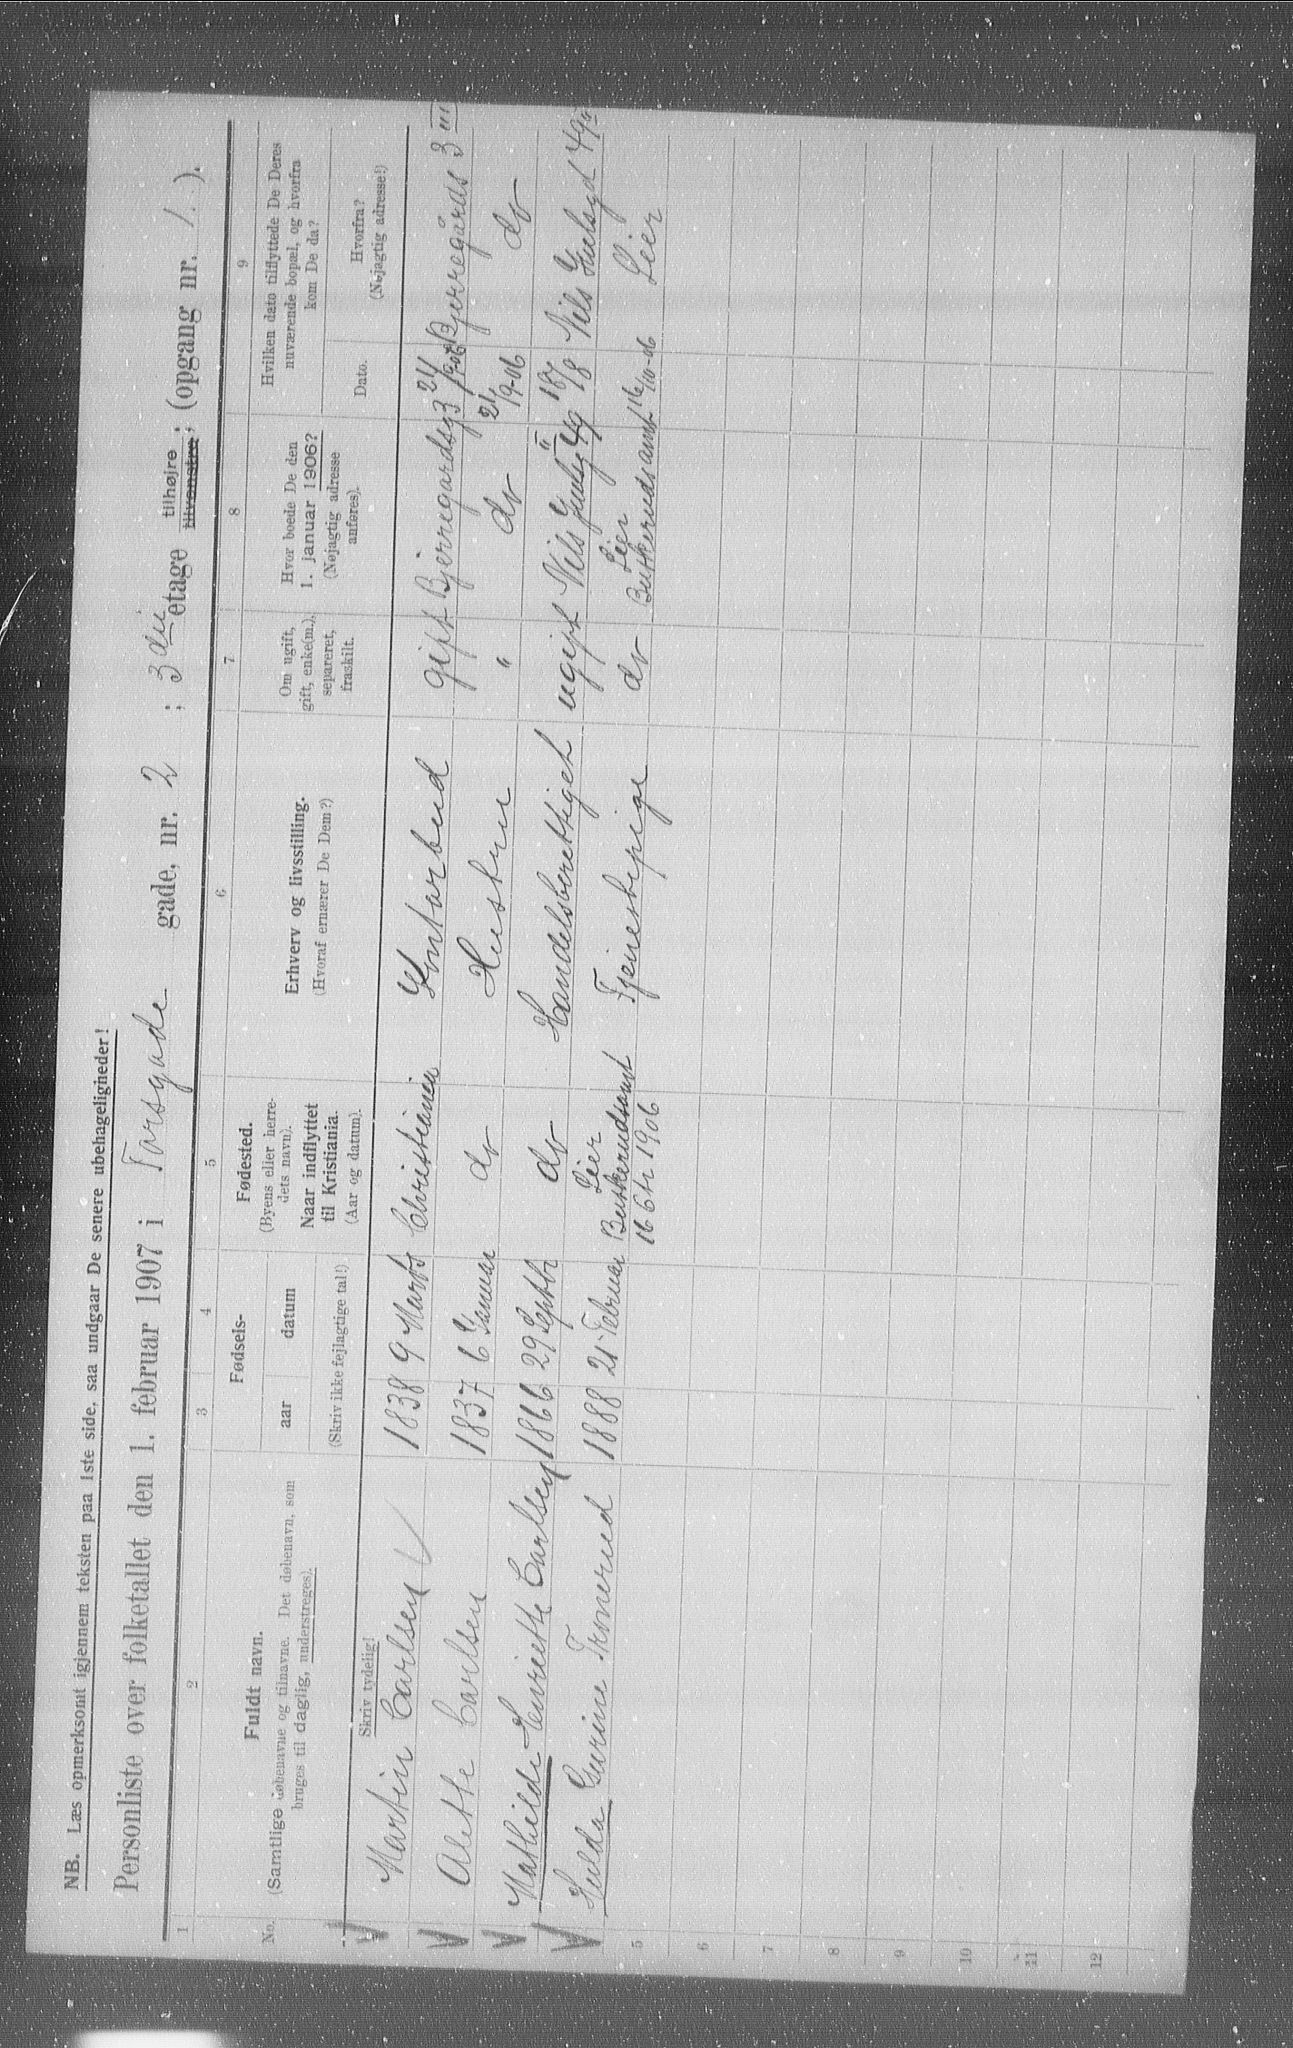 NB. Læs opmerksomt igjennem teksten paa 1ste side, saa undgaar De senere ubehageligheder!
Personliste over folketallet den 1. februar 1907 i Torsgade gade, nr. 2 ; 3die etage tilhøjre tilvenstre; (opgang nr. 1. ).
1 2 3 4 5 6 7 8 9
No. Fuldt navn. (Samtlige døbenavne og tilnavne. Det døbenavn, som bruges til daglig, understreges).
Fødsels- aar datum
Fødested. (Byens eller herredets navn). Naar indflyttet til Kristiania. (Aar og datum).
Erhverv og livsstilling. (Hvoraf ernærer De Dem?)
Om ugift, gift, enke(m.), separeret, fraskilt.
Hvor boede De den 1. januar 1906? (Nøjagtig adresse anføres).
Hvilken dato tilflyttede De Deres nuværende bopæl, og hvorfra kom De da?
Skriv tydelig! (Skriv ikke fejlagtige tal!) Dato. Hvorfra? (Nøjagtig adresse!)
Martin Carlsen 1838 9 Marts Christiania Kontorbud gift Bjerregardsg 3 21/9-06 Bjerregårds 3 III
Alette Carlsen 1837 6 Januar do Hustru " do 21/9-06 do
Mathilde Henriette Carlsen 1866 29 Septbr do Handelsberettiget ugift Nils Juelsg 49 Nils Juelsgd 49
Hulda Gurine Tronerud 1888 21 Februar Lier Buskerudsamt 16 Otr 1906 Tjenestepige do Lier Buskerudsamt 16/10-06 Lier
5
6
7
8
9
10
11
12